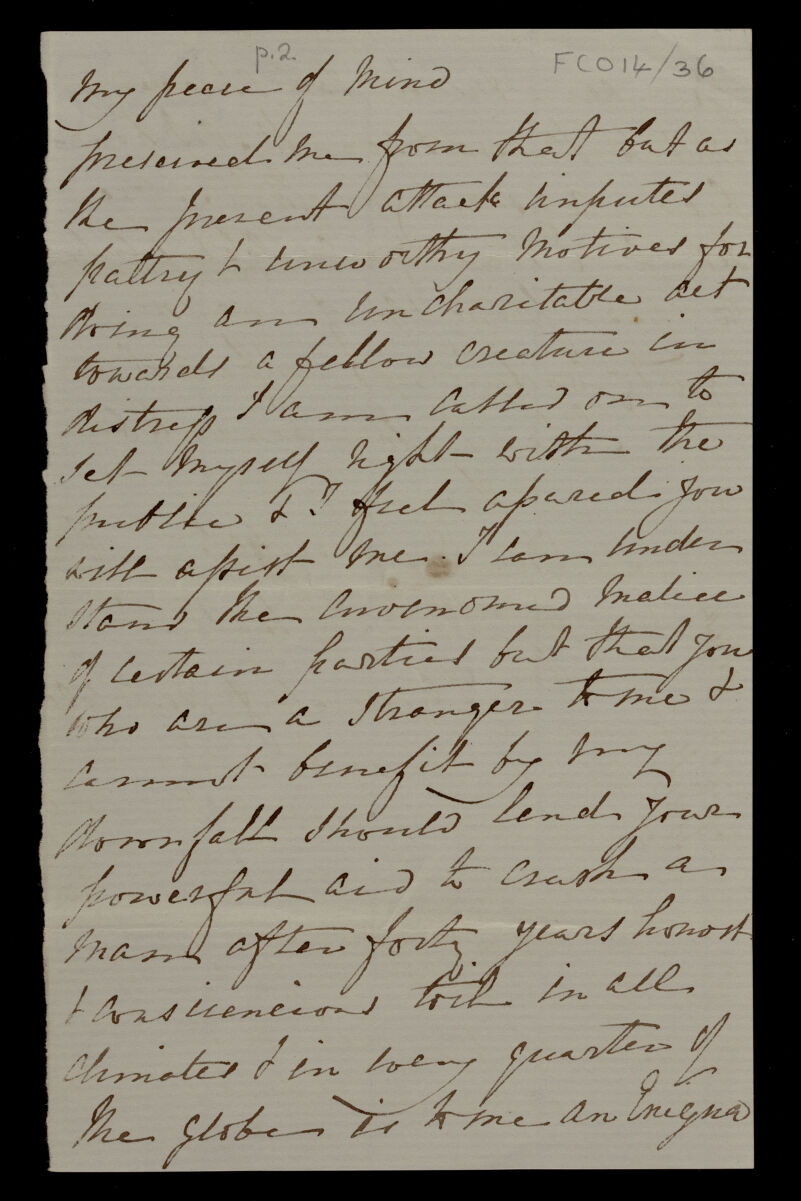 p.2. FCO14/36
My peace of Mind
preserved me from that but as
the present attack imputes
paltry & unworthy Motives for
doing an uncharitable act
towards a fellow creature in
distress I am called on to
set Myself right with the
public & I feel assured you
will assist me. I can under
stand the envenomed Malice
of certain parties but that you
who are a Stranger to me &
cannot benefit by my
downfall should lend your
powerful aid to crush a
man after forty years honost
& consciencious toil in all
climates & in every quarter of
the globe is to me an Enigma